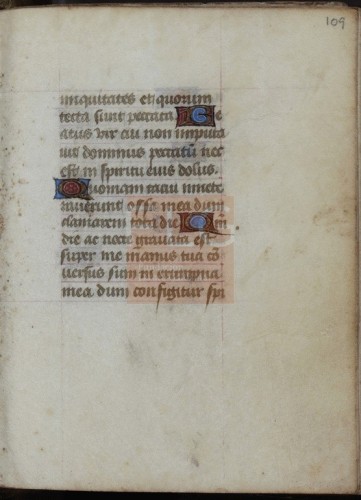 109
iniquitates et quorum
tecta sunt peccata Be
atus vir cui non imputa
uit dominus peccatū nec
est in spiritu eius dolus.
Quoniam tacui inuete
rauerunt ossa mea dum
clamarem tota die Qm̄
die ac nocte grauata est
super me manus tua cō
uersus sum in erumpna
mea dum configitur spi